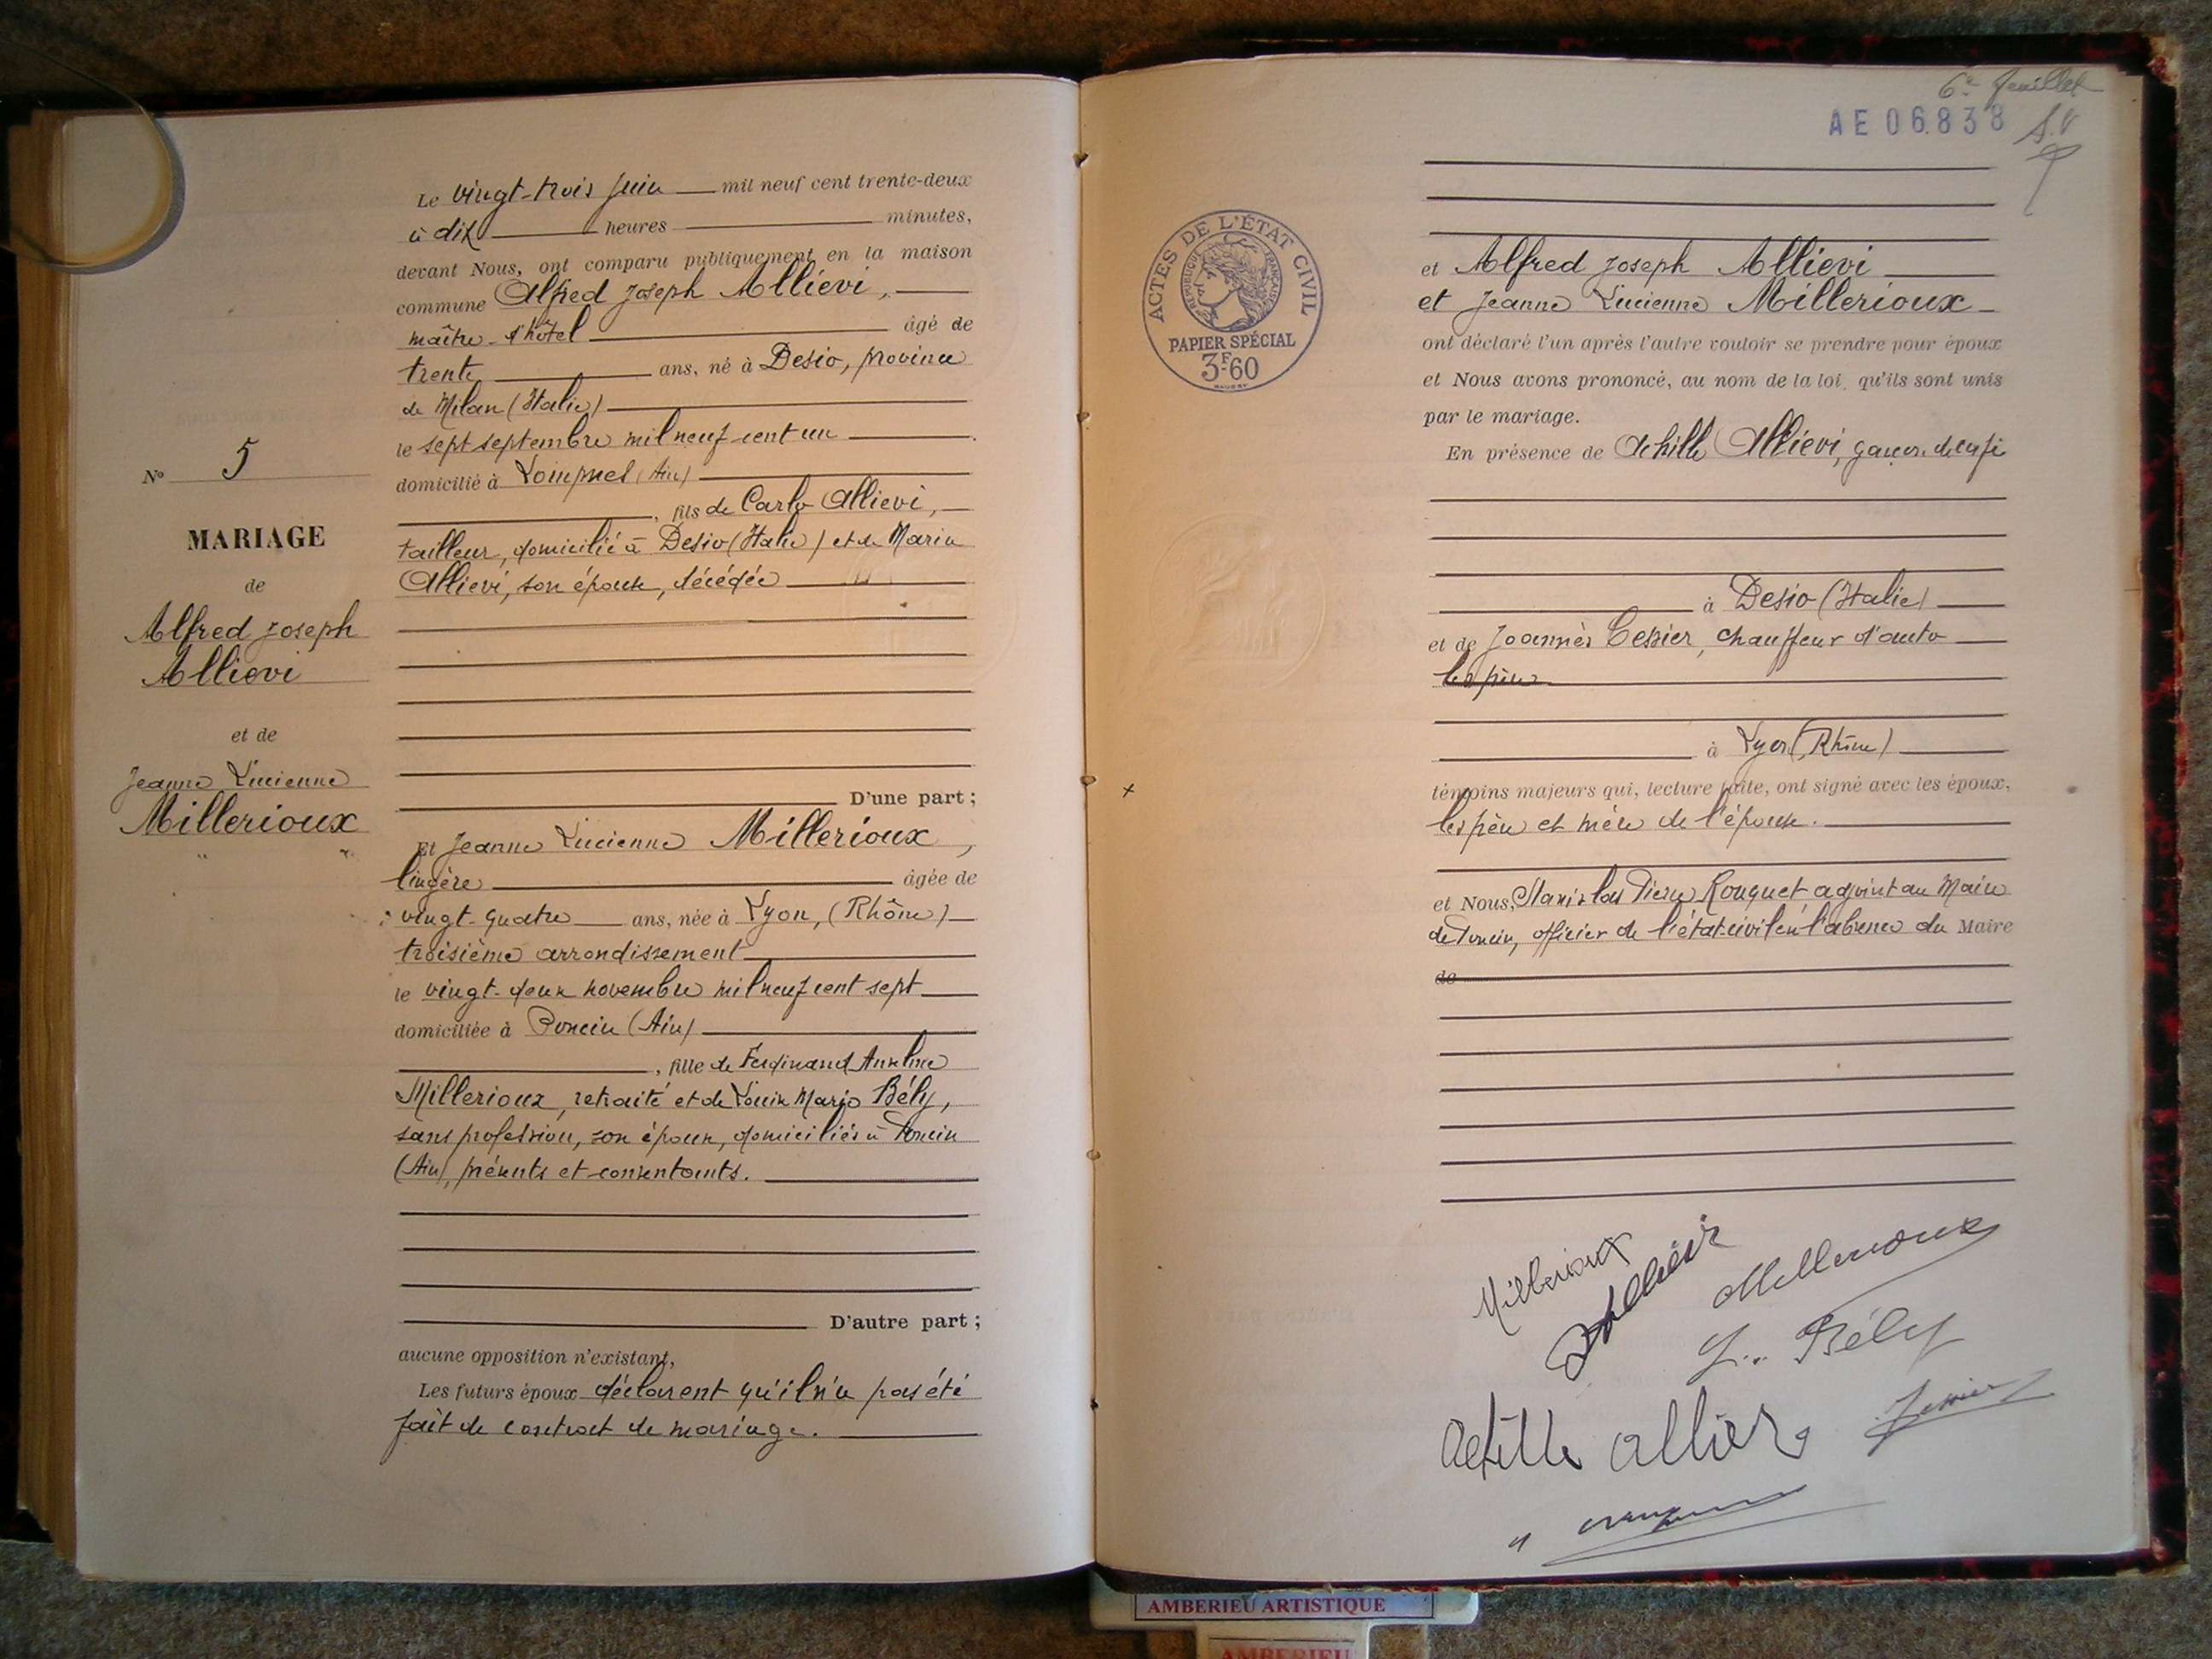 Le vingt-trois juin mil neuf cent trente-deux
à dix heures minutes,
devant Nous, ont comparu publiquement en la maison
commune Alfred Joseph Alliévi,
maître-d'hôtel âgé de
trente ans, né à Desio, province
de Milan (Italie)
le sept septembre mil neuf cent un
domicilié à Lompnes (Ain)
, fils de Carlo Allievi,
tailleur, domicilié à Desio (Italie) et de Maria
Allievi, son épouse, décédée
D'une part ;
Et Jeanne Lucienne Millerioux,
lingère âgée de
vingt-quatre ans, née à Lyon, (Rhône)
troisième arrondissement
le vingt-deux novembre mil neuf cent sept
domiciliée à Poncin (Ain)
, fille de Ferdinand Anselme
Millerioux, retraité et de Louise Marie Bély,
sans profession, son épouse, domiciliés à Poncin
(Ain), présents et consentants.
D'autre part ;
aucune opposition n'existant,
Les futurs époux déclarent qu'il n'a pas été
fait de contrat de mariage.
No 5
MARIAGE
de
Alfred Joseph
Allievi
et de
Jeanne Lucienne
Millerioux
6e feuillet
AE 06.838
ACTES DE L'ÉTAT CIVIL
RÉPUBLIQUE FRANÇAISE
PAPIER SPÉCIAL
3F60
et Alfred Joseph Allievi
et Jeanne Lucienne Millerioux
ont déclaré l'un après l'autre vouloir se prendre pour époux
et Nous avons prononcé, au nom de la loi, qu'ils sont unis
par le mariage.
En présence de Achille Allievi, garçon de café
à Desio (Italie)
et de Joannès Tessier, chauffeur d'auto
les père
à Lyon (Rhône)
témoins majeurs qui, lecture faite, ont signé avec les époux,
les père et mère de l'épouse.
et Nous, Stanislas Pierre Rouquet adjoint au Maire
de Poncin, officier de l'état-civil en l'absence du Maire
de
Millerioux
Allievi
Millerioux
L. Bély
Achille Allievi
AMBERIEU ARTISTIQUE
AMBERIEU